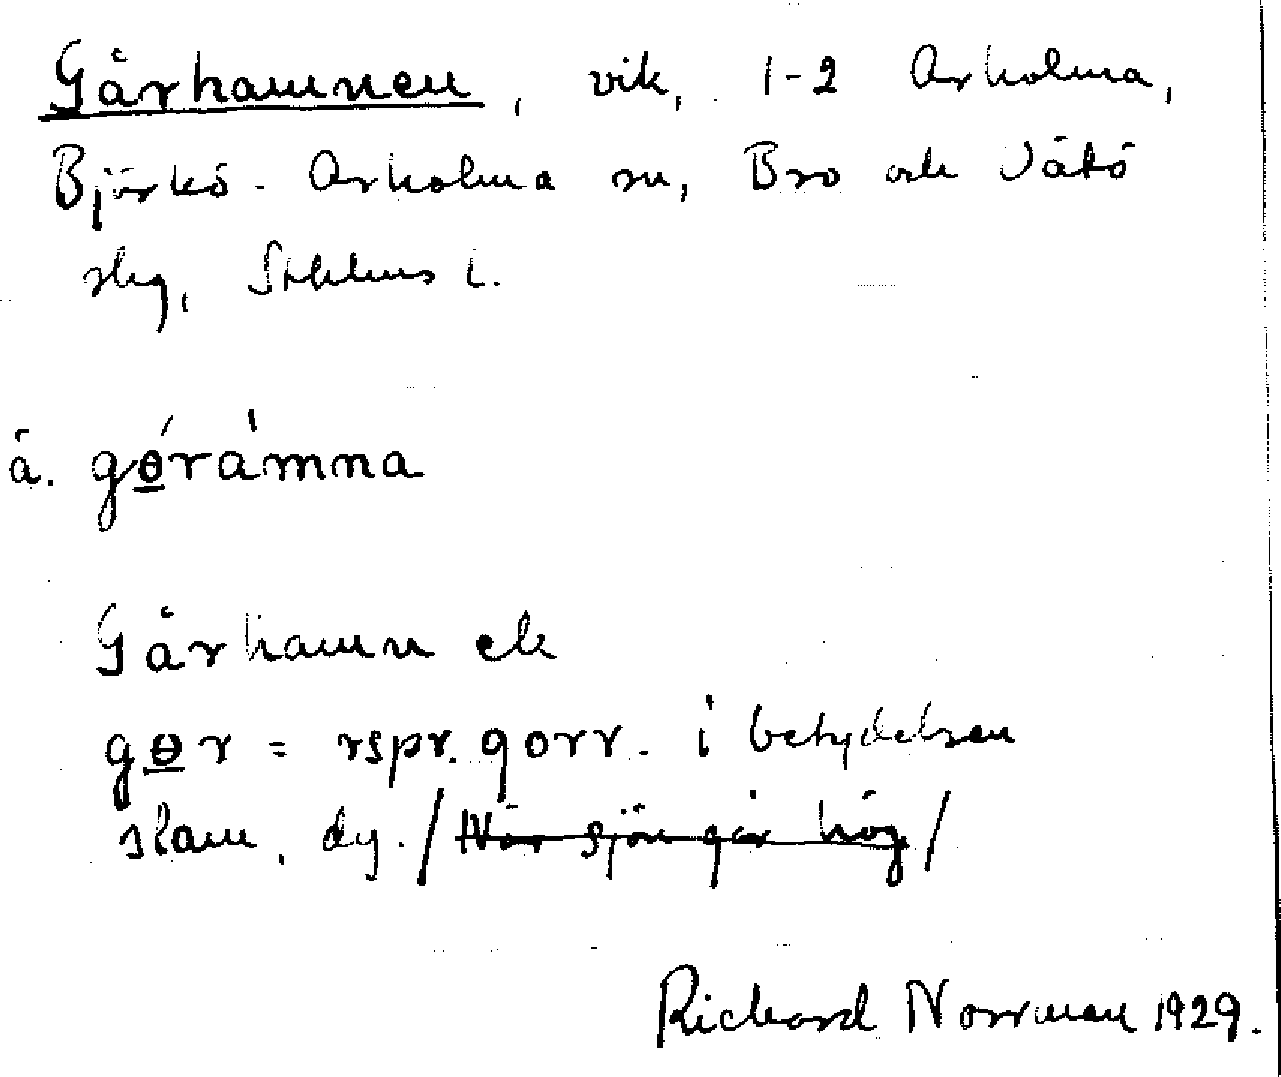 Gårhamnen, vik, 1-2 Arholma,
Björkö-Arholma sn, Bro och Vätö
slg, Sthlms l.
å. gɵ́rámna
Gårhamn ek
gɵr = rspr. gorr. i betydelsen
slam, dy. /När sjön går hög/
Richard Norrman 1929.